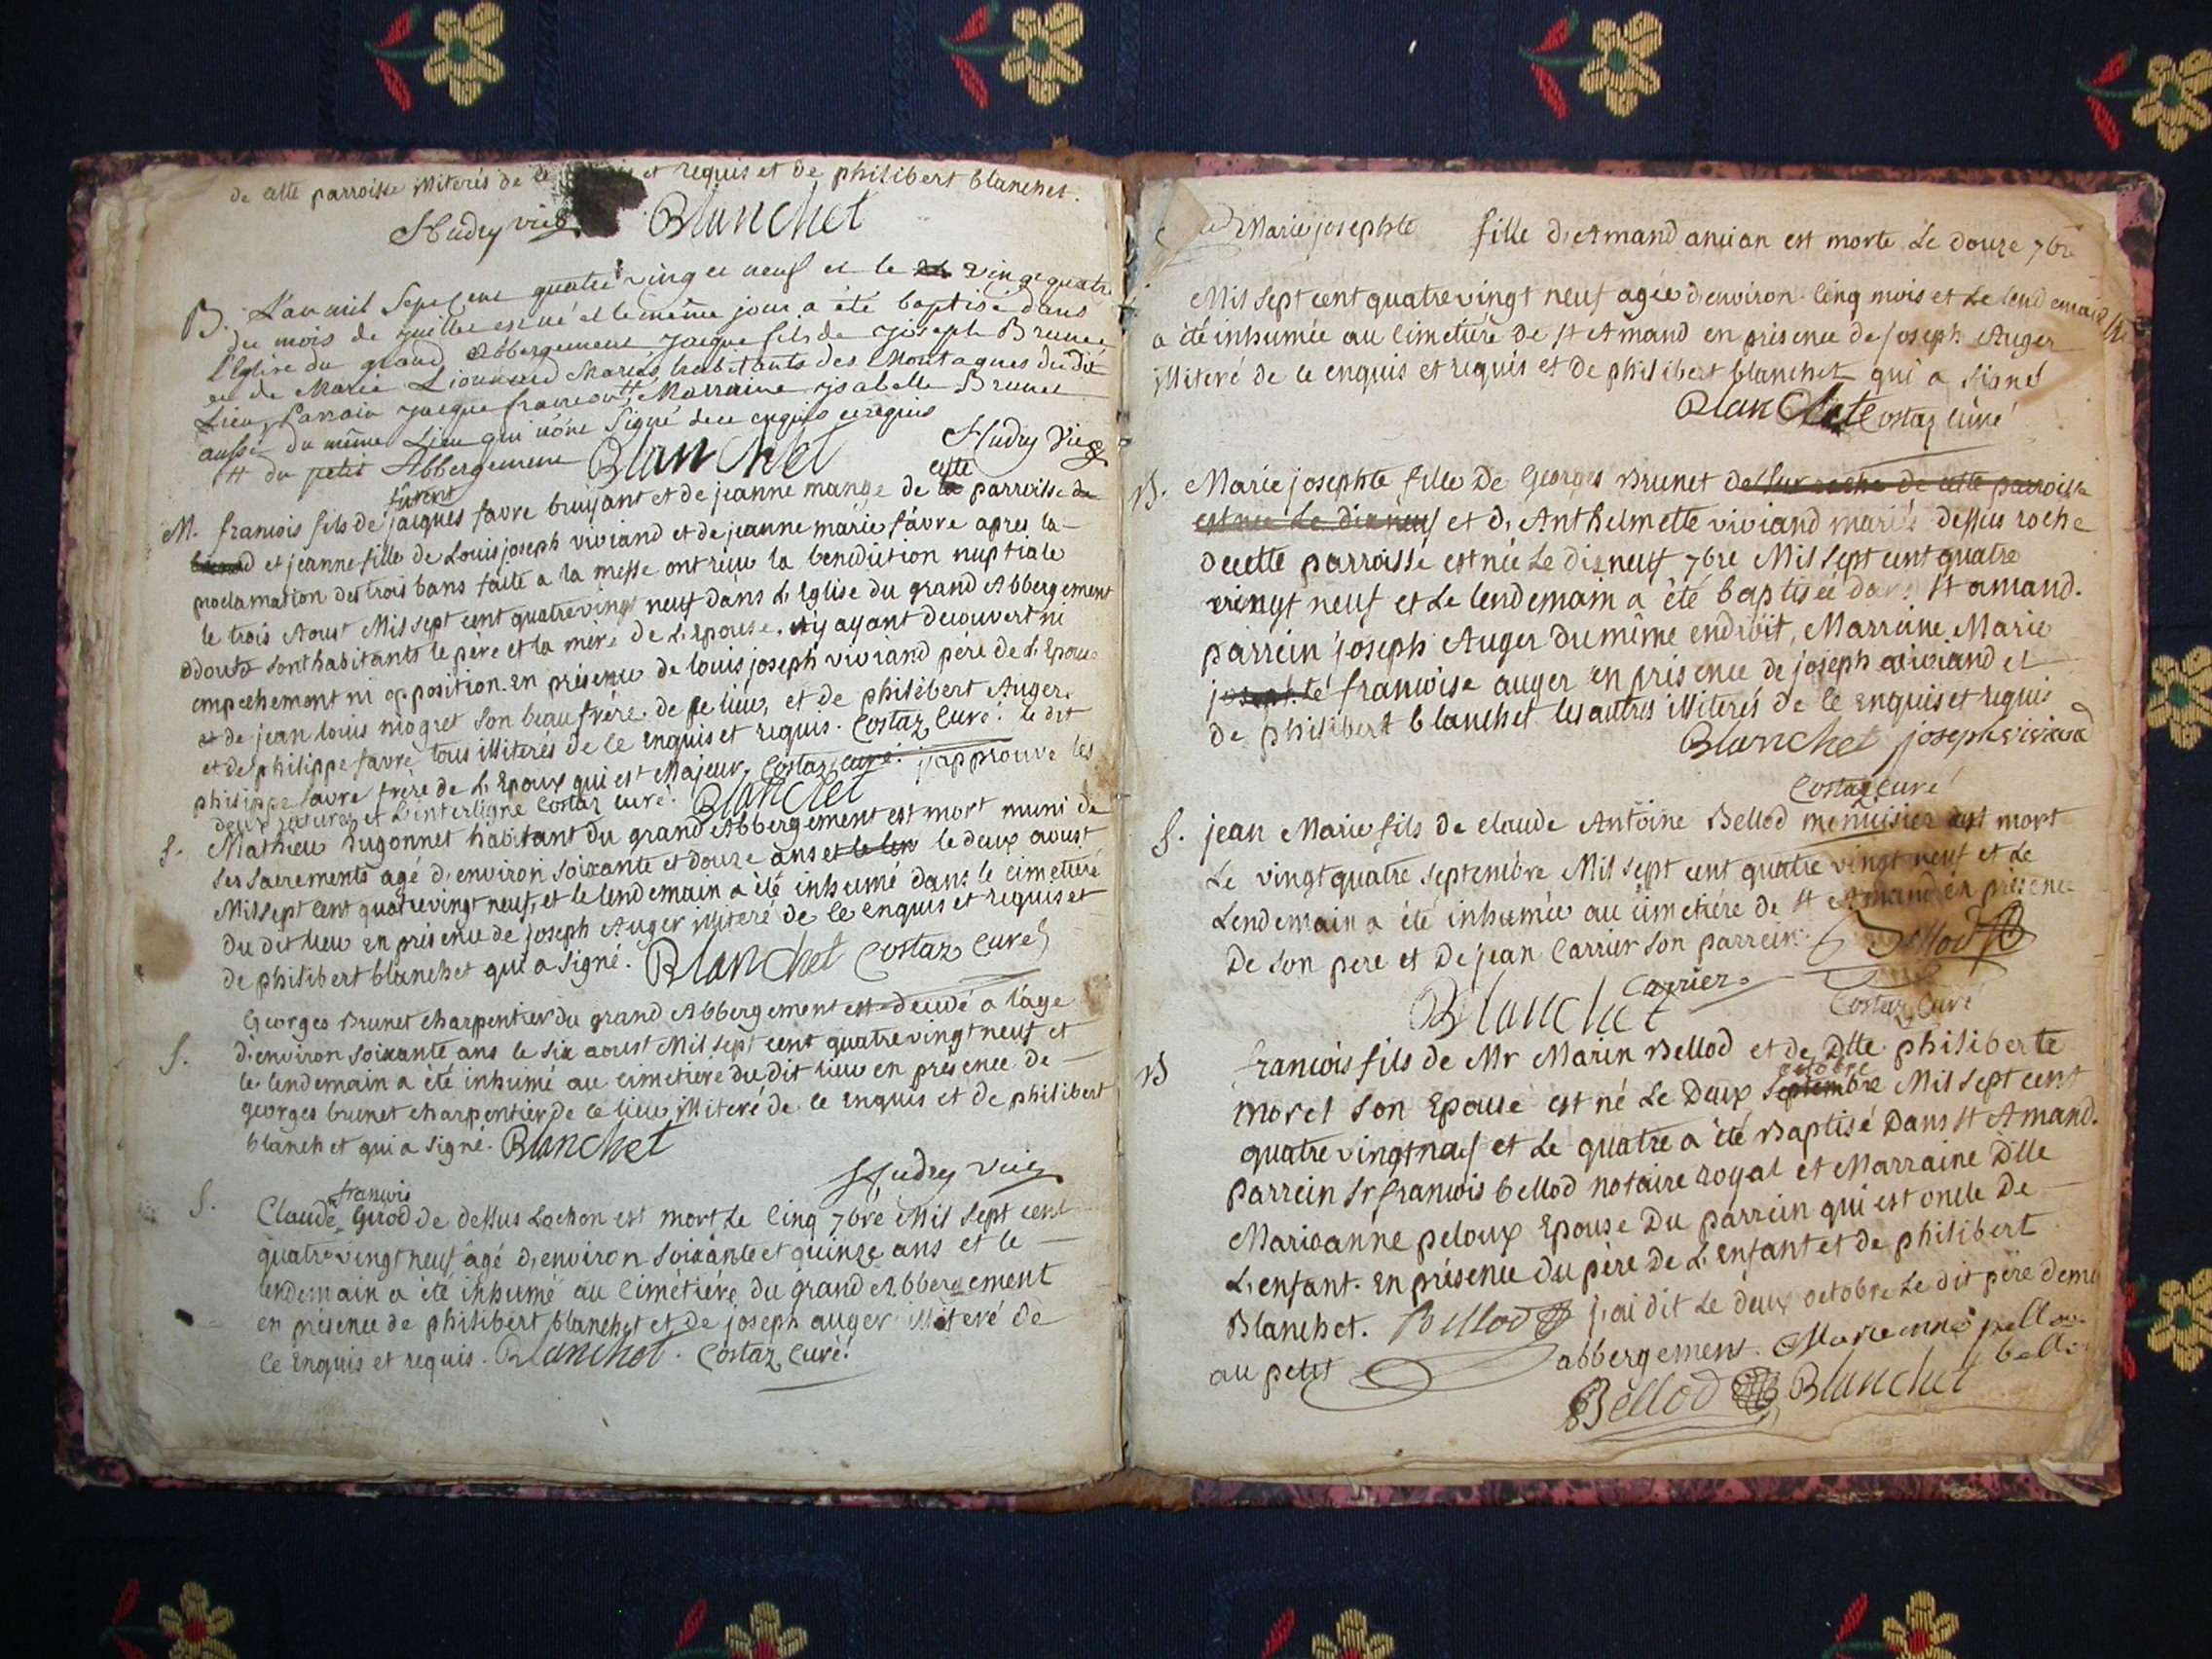 de cette parroisse illiterés de ce et requis et de philibert blanchet.
Hudry vic Blanchet
B. L'an mil sept cent quatre vingt et neuf et le vingt quatre
du mois de juillet est né et le même jour a été baptisé dans
l'Eglise du grand Abbergement jacque fils de joseph Brunet
et de Marie Mariés habitants des Montagnes du dit
Lieu, Parrain jacque Marraine ysabelle Brunet
aussi du même Lieu qui n'ont Signé de ce enquis et requis
du petit Abbergement Blanchet Hudry Vic
furent cette
M. francois fils de jacques favre bruyant et de jeanne mange de la parroisse de
et jeanne fille de Louis joseph viviand et de jeanne marie favre apres la
proclamation des trois bans faite a la messe ont reçu la benediction nuptiale
le trois Aoust Mil sept cent quatre vingt neuf dans L'Eglise du grand Abbergement
d'ou sont habitants le père et la mère de L'Epouse. n'y ayant decouvert ni
empechement ni opposition. en présence de louis joseph viviand père de L'Epouse
et de jean louis niogret son beau frère de ce lieu, et de philibert Auger
et de philippe favre tous illiterés de ce enquis et requis. Costaz Curé. le dit
philippe favre frère de L'Epoux qui est Majeur, Costaz curé. j'approuve les
deux ratures et L'interligne Costaz curé. Blanchet
S. Mathieu hugonnet habitant du grand Abbergement est mort muni de
ses sacrements agé d'environ soixante et douze ans et le len le deux aoust
Mil sept cent quatre vingt neuf, et le lendemain a été inhumé dans le cimetière
du dit lieu en présence de joseph Auger illiteré de ce enquis et requis et
de philibert blanchet qui a signé. Blanchet Costaz Curé
Georges Brunet charpentier du grand Abbergement est decedé a l'age
S. d'environ soixante ans le six aoust Mil sept cent quatre vingt neuf et
le lendemain a été inhumé au cimetière du dit lieu en présence de
georges brunet charpentier de ce lieu illiteré de ce enquis et de philibert
blanchet qui a signé. Blanchet
Hudry vic
francois
S. Claude Girod de dessus Lochon est mort Le Cinq 7bre Mil Sept cent
quatre vingt neuf âgé d'environ soixante et quinze ans et le
lendemain a été inhumé au cimetiére du grand Abbergement
en présence de philibert blanchet et de joseph auger illiteré de
ce enquis et requis. Blanchet. Costaz Curé.
Marie josephte fille d'Amand ancian est morte Le douze 7bre
Mil sept cent quatre vingt neuf agée d'environ cinq mois et Le lendemain
a été inhumée au cimetière de st Amand en présence de joseph Auger
illiteré de ce enquis et requis et de philibert blanchet qui a signé
Blanchet Costaz curé
B. Marie josephte fille de Georges Brunet de sur roche de cette parroisse
est née Le dix neuf et d'Anthelmette viviand mariés dessus roche
de cette parroisse est née Le dix neuf 7bre Mil sept cent quatre
vingt neuf et Le lendemain a été baptisée dans st amand.
parrein joseph Auger du même endroit, Marreine Marie
francoise auger en présence de joseph viviand et
de philibert blanchet les autres illiterés de ce enquis et requis
Blanchet joseph viviand
Costaz Curé
S. jean Marie fils de claude Antoine Bellod menuisier est mort
Le vingt quatre septembre Mil sept cent quatre vingt neuf et Le
Lendemain a été inhumée au cimetière de st Amand en présence
De son pere et De jean Carrier son parrein. Bellod
Carrier
Blanchet Costaz Curé
B francois fils de Mr Marin Bellod et de Dlle philiberte
octobre
morel son Epouse est né Le Deux septembre Mil sept cent
quatre vingt neuf et Le quatre a été Baptisé Dans st Amand.
Parrein Sr francois bellod notaire royal et Marraine Dlle
Marieanne peloux Epouse Du parrein qui est oncle De
L'enfant. En présence Du père De L'enfant et de philibert
Blanchet. Bellod j'ai dit Le deux octobre Le dit père
au petit abbergement. Marieanne
Bellod Blanchet